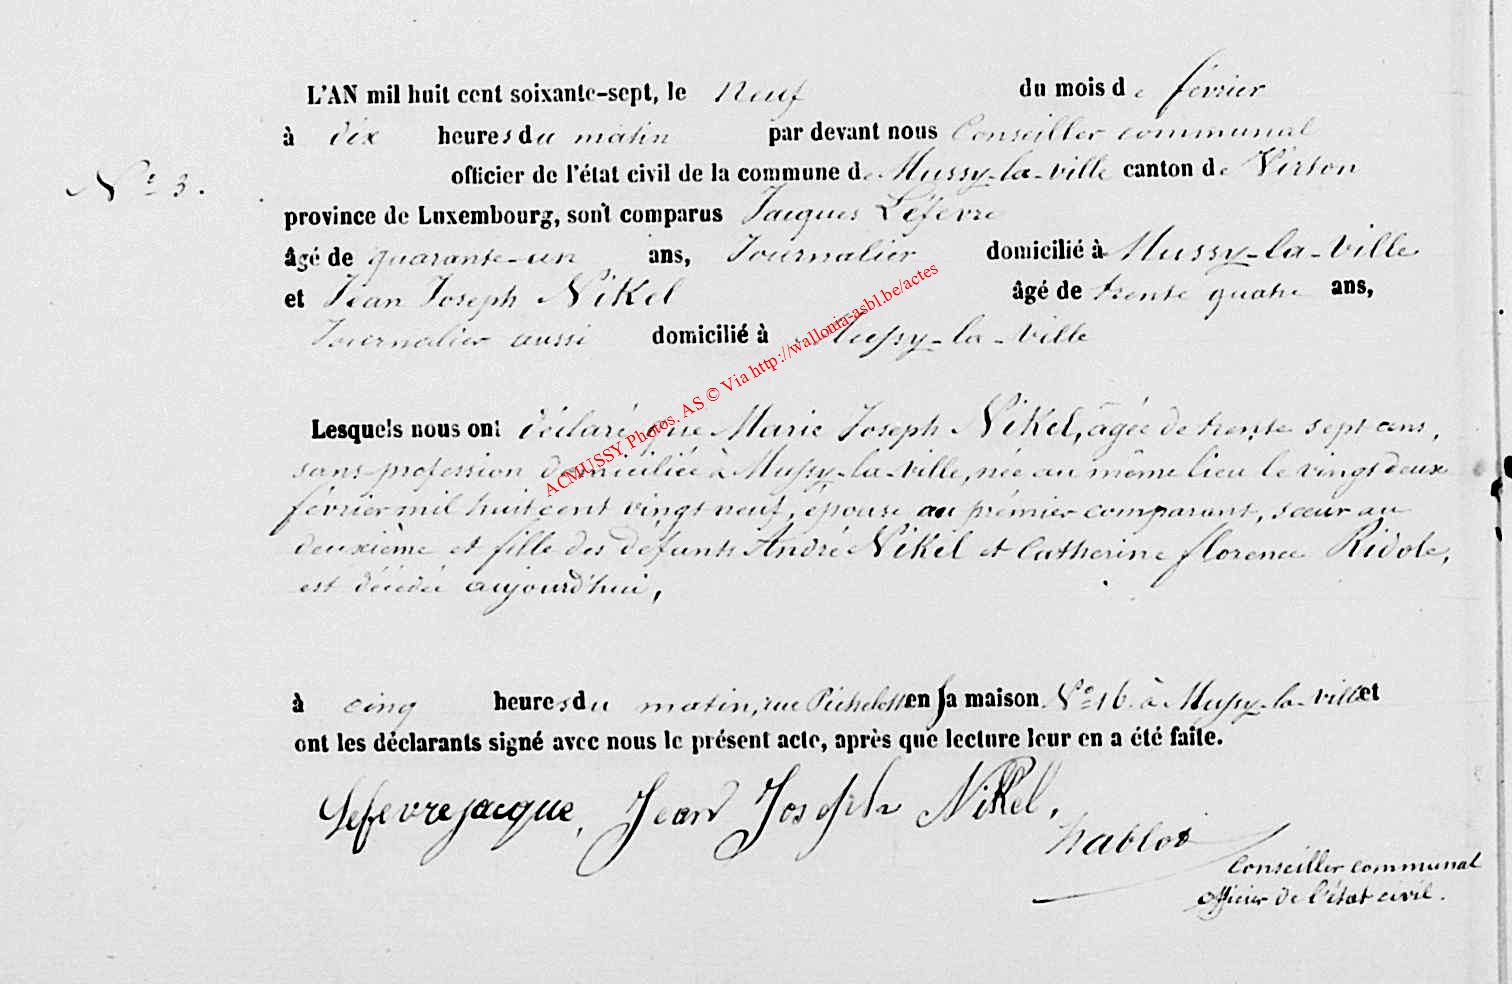 L'AN mil huit cent soixante-sept, le neuf du mois de février
à dix heures du matin par devant nous Conseiller communal
N° 3.
officier de l'état civil de la commune de Mussy-la-ville canton de Virton
province de Luxembourg, sont comparus Jacques Lefevre
âgé de quarante-un ans, Journalier domicilié à Mussy-la-Ville
et Jean Joseph Nikel âgé de trente quatre ans,
Journalier aussi domicilié à Mussy-la-Ville
Lesquels nous ont déclaré que Marie Joseph Nikel, âgée de trente sept ans,
sans profession domiciliée à Mussy-la-Ville, née au même lieu le vingt deux
février mil huit cent vingt neuf, épouse au prémier comparant, sœur au
deuxième et fille des defunts André Nikel et Catherine florence Ridole,
est décédée aujourd'hui,
à cinq heures du matin, rue en sa maison N° 16 à Mussy-la-ville et
ont les déclarants signé avec nous le présent acte, après que lecture leur en a été faite.
Lefevre jacque, Jean Joseph Nikel,
hablot
Conseiller communal
officier de l'état civil.
ACMUSSY Photos. AS © Via http://wallonia-asbl.be/actes